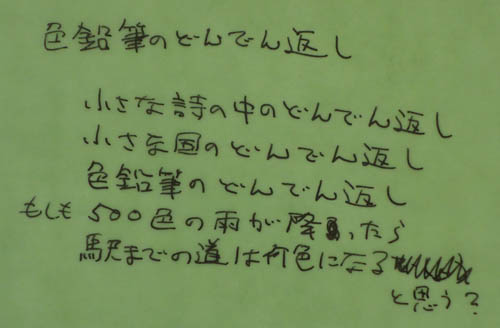 色鉛筆のどんでん返し
小さな詩の中のどんでん返し
小さな国のどんでん返し
色鉛筆のどんでん返し
もしも500色の雨が降ったら
駅までの道は何色になる
と思う?